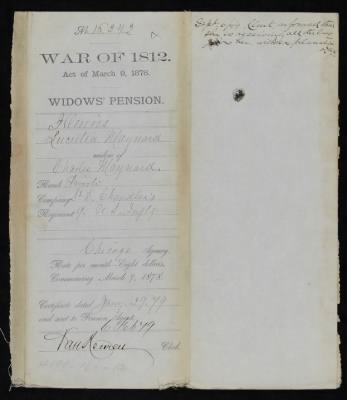 No 15242
WAR OF 1812.
Act of March 9, 1878.
WIDOWS' PENSION.
Illinois
Lucretia Maynard
widow of
Charles Maynard
Rank Private
Company Chandler's
Regiment 9 U.S. Infty
Chicago Agency.
Rate per month Eight dollars,
Commencing March 9, 1878.
Certificate dated Jany. 29. 79
and sent to Pension Agent,
6 Feb 79
Clerk.
Clmt informed that
she is receiving all the law